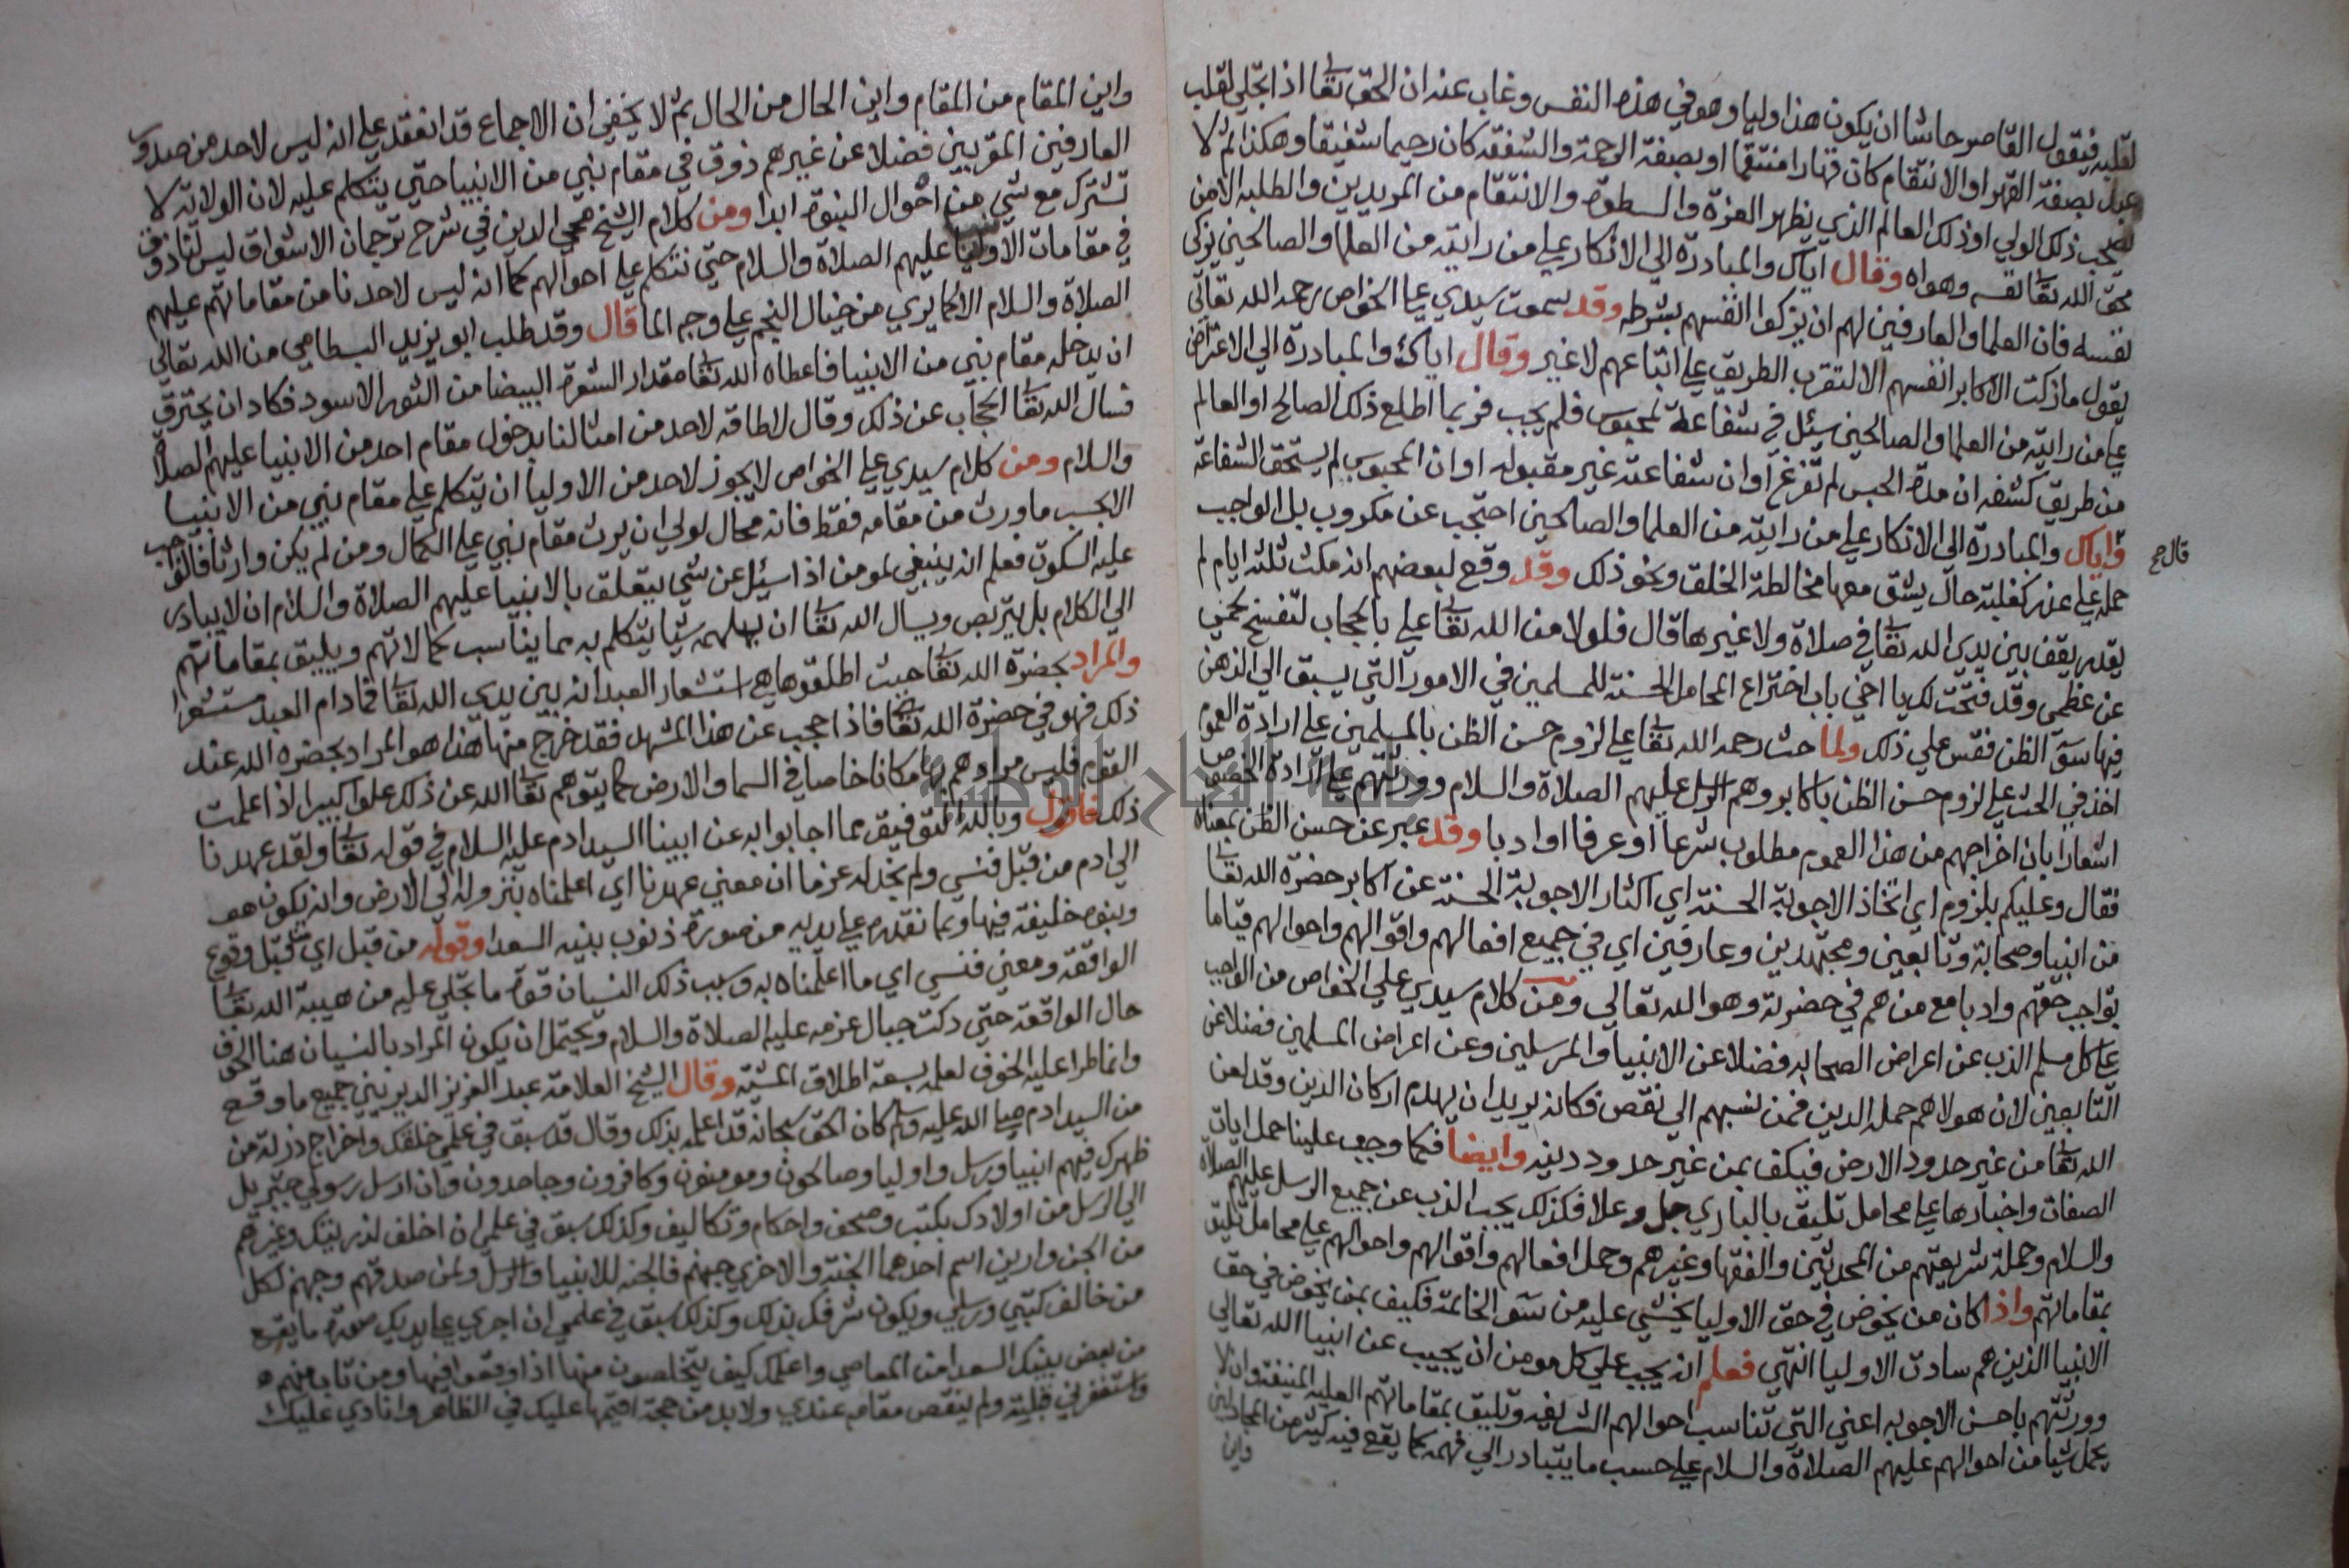 لقلبه فيقول القاصر حاشا ان يكون هذا وليا وهو في هذه النفس وغاب عنه ان الحق تعا اذا تجلي لقلب
عبد بصفة القهر او الانتقام كان قهارا منتقما او بصفة الرحمة والشفقة كان رحيما شفيقا وهكذا ثم لا
يصحب ذلك الولي او ذلك العالم الذي يظهر العزة والسطوة والانتقام من المريدين والطلبة الا من
محق الله تعا نفسه وهواه وقال اياك والمبادرة الي الانكار علي من رايته من العلما والصالحين يزكي
نفسه فان العلما والعارفين لهم ان يزكوا انفسهم بشرطه وقد سمعت سيدي عليا الخواص رحمه الله تعالي
يقول ما زكت الاكابر انفسهم الا لتقرب الطريق علي اتباعهم لا غير وقال اياك والمبادرة الي الاعتراض
علي من رايته من العلما والصالحين سيئل في شفاعة لمحبوس فلم يجب فربما اطلع ذلك الصالح او العالم
من طريق كشفه ان مدة الحبس لم تفرغ او ان شفاعته غير مقبوله او ان المحبوس لم يستحق الشفاعة
قال ج
واياك والمبادرة الي الانكار علي من رايته من العلما والصالحين احتجب عن مكروب بل الواجب
حمله علي عذر كغلبة حال يشق معها مخالطة الخلق ونحو ذلك وقد وقع لبعضهم انه مكث ثلثة ايام لم
يقدر يقف بين يدي الله تعا في صلاة ولا غيرها قال فلولا من الله تعا علي بالحجاب لتفسخ لحمي
عن عظمي وقد فتحت لك يا اخي باب اختراع المحامل الحسنة للمسلمين في الامور التي يسبق الي الذهن
فيها سو الظن فقس علي ذلك ولما حث رحمه الله تعا علي لزوم حسن الظن بالمسلمين علي ارادة العموم
اخذ في الحث علي لزوم حسن الظن باكابرهم الرسل عليهم الصلاة والسلام وورثتهم علي ارادة الخصوص
اشعارا بان اخراجهم من هذا العموم مطلوب شرعا او عرفا او ادبا وقد عبر عن حسن الظن بمعناه
فقال وعليكم بلزوم اي اتخاذ الاجوبة الحسنة اي اكثار الاجوبة الحسنة عن اكابر حضرة الله تعا
من انبيا وصحابة وتابعين ومجتهدين وعارفين اي في جميع افعالهم واقوالهم واحوالهم قياما
بواجب حقهم وادبا مع من هم في حضرته وهو الله تعالي ومن كلام سيدي علي الخواص من الواجب
علي كل مسلم الذب عن اعراض الصحابه فضلا عن الانبيا والمرسلين وعن اعراض المسلمين فضلا عن
التابعين لان هولا هم حملة الدين فمن نسبهم الي نقص فكانه يريد ان يهدم اركان الدين وقد لعن
الله تعا من غير حدود الارض فكيف بمن غير حدود دينه وايضا فكما وجب علينا حمل ايات
الصفات واخبارها علي محامل تليق بالباري جل وعلا فكذلك يجب الذب عن جميع الرسل عليهم الصلاة
والسلام وحملة شريعتهم من المحدثين والفقها وغيرهم وحمل افعالهم واقوالهم واحوالهم علي محامل تليق
بمقاماتهم واذا كان من يخوض في حق الاوليا يخشي عليه من سو الخاتمة فكيف بمن يخوض في حق
الانبيا الذين هم سادت الاوليا انتهي فعلم انه يجب علي كل مومن ان يجيب عن انبيا الله تعالي
وورثتهم باحسن الاجوبه اعني التي تناسب احوالهم الشريفه وتليق بمقاماتهم العليه المنيفة وان لا
يحمل شيا من احوالهم عليهم الصلاة والسلام علي حسب ما يتبادر الي فهمه كما يقع فيه كثير من المجادلين
واين
واين المقام من المقام واين الحال من الحال ثم لا يخفي ان الاجماع قد انعقد علي انه ليس لاحد من صدور
العارفين المقربين فضلا عن غيرهم ذوق في مقام نبي من الانبيا حتي يتكلم عليه لان الولاية لا
تشترك مع شي من احوال النبوة ابدا ومن كلام الشيخ محيي الدين في شرح ترجمان الاشواق ليس لنا ذوق
في مقامات عليهم الصلاة والسلام حتي نتكلم علي احوالهم كما انه ليس لاحدنا من مقاماتهم عليهم
الصلاة والسلام الا كما يري من خيال النجم علي وجه الما قال وقد طلب ابو يزيد البسطامي من الله تعالي
ان يدخله مقام نبي من الانبيا فاعطاه الله تعا مقدار الشعرة البيضا من الثور الاسود فكاد ان يحترق
فسال الله تعا الحجاب عن ذلك وقال لا طاقه لاحد من امثالنا بدخول مقام احد من الانبيا عليهم الصلاة
والسلام ومن كلام سيدي علي الخواص لا يجوز لاحد من الاوليا ان يتكلم علي مقام نبي من الانبيا
الا بحسب ما ورث من مقامه فقط فانه محال لولي ان يرث مقام نبي علي الكمال ومن لم يكن وارثا فالواجب
عليه السكوت فعلم انه ينبغي لمومن اذا سيئل عن شي يتعلق بالانبيا عليهم الصلاة والسلام ان لا يبادر
الي الكلام بل يتربص ويسال الله تعا ان يلهمه شيا يتكلم به مما يناسب كمالاتهم ويليق بمقاماتهم
والمراد بحضرة الله تعا حيث اطلقوها هي استشعار العبد انه بين يدي الله تعا فما دام العبد مستشعرا
ذلك فهو في حضرة الله تعا فاذا حجب عن هذا المشهد فقد خرج منها هذا هو المراد بحضره الله عند
القوم فليس مرادهم بها مكانا خاصا في السما والارض كما يتوهم تعا الله عن ذلك علوا كبيرا اذا علمت
ذلك فاقول وبالله التوفيق مما اجابوا به عن ابينا السيد ادم عليه السلام في قوله تعا ولقد عهدنا
الي ادم من قبل فنسي ولم نجد له عزما ان معني عهدنا اي اعلمناه بنزوله الي الارض وانه يكون هو
وبنوه خليفة فيها وبما نقدره علي يديه من صورة ذنوب بنيه السعدا وقوله من قبل اي قبل وقوع
الواقعة ومعني فنسي اي ما اعلمناه به وسبب ذلك النسيان قوة ما تجلي عليه من هيبة الله تعا
حال الواقعة حتي دكت جبال عزمه عليه الصلاة والسلام ويحتمل ان يكون المراد بالنسيان هنا الخوف
وانما طرا عليه الخوف لعلمه بسعة اطلاق المشية وقال الشيخ العلامة عبد العزيز الديريني جميع ما وقع
من السيد ادم صلي الله عليه وسلم كان الحق سبحانه قد اعلمه بذلك وقال قد سبق في علمي خلقك واخراج ذرية من
ظهرك فيهم انبيا ورسل واوليا وصالحون ومومنون وكافرون وجاحدون وان ارسل رسولي جبريل
الي الرسل من اولادك بكتب وصحف واحكام وتكاليف وكذلك سبق في علمي ان اخلف لذريتك وغيرهم
من الجن دارين اسم احدهما الجنة والاخري جهنم فالجنه للانبيا والرسل ولمن صدقهم وجهنم لكل
من خالف كتبي ورسلي ويكون شرفك بذلك وكذلك سبق في علمي ان اجري علي يديك صورة ما يقع
من بعض بنيك السعدا من المعاصي واعلمك كيف يتخلصون منها اذا وقعوا فيها ومن تاب منهم
واستغفرني قبلته ولم ينقص مقامه عندي ولا بد من حجة اقيمها عليك في الظاهر وانادي عليك